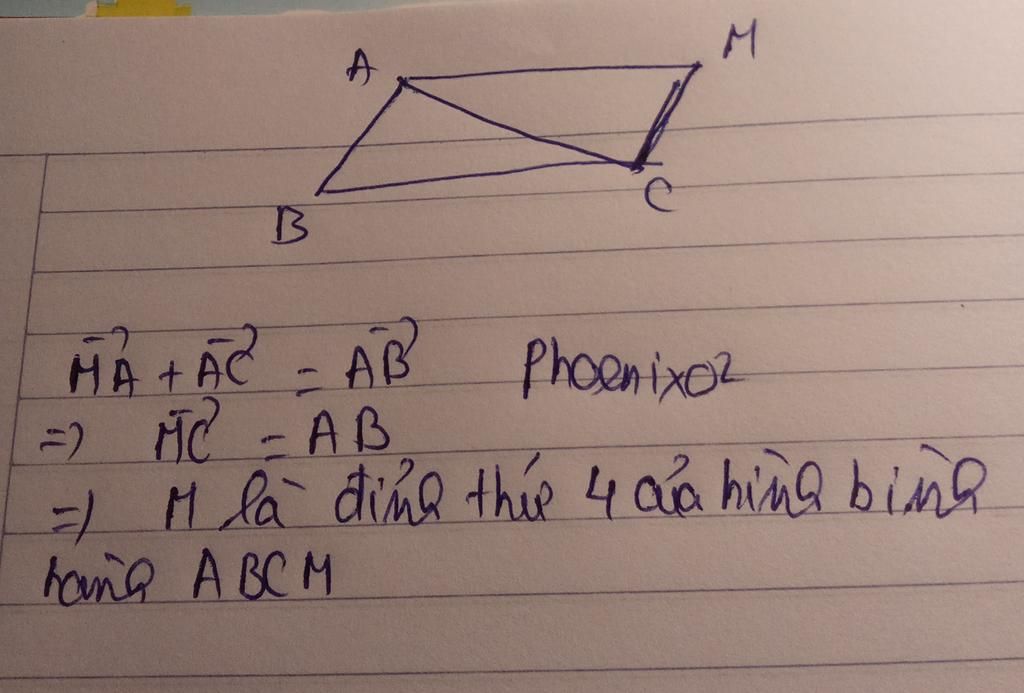 A M
B C
M⃗A + A⃗C = A⃗B Phoenix02
=> M⃗C = AB
=> M là đỉnh thứ 4 của hình bình
hành ABCM